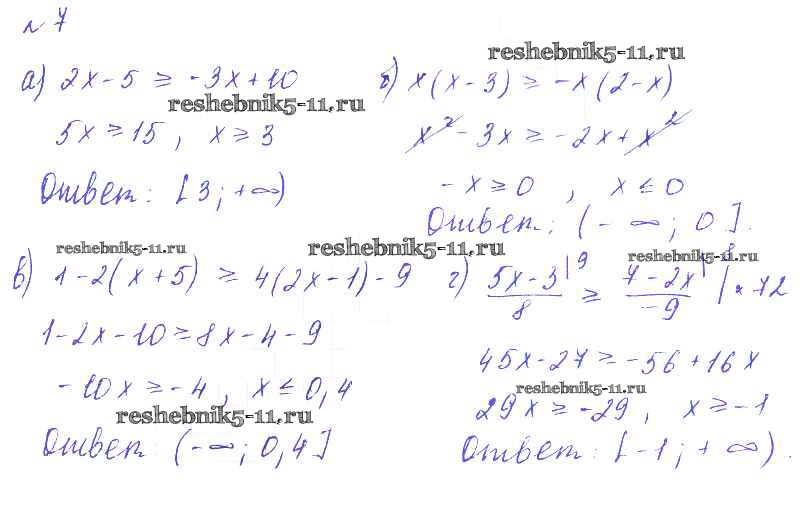 № 7
reshebnik5-11.ru
а) 2x - 5 ≥ -3x + 10
reshebnik5-11.ru
5x ≥ 15, x ≥ 3
Ответ: [3; +∞)
б) x(x - 3) ≥ -x(2 - x)
x² - 3x ≥ -2x + x²
-x ≥ 0, x ≤ 0
Ответ: (-∞; 0].
reshebnik5-11.ru
reshebnik5-11.ru
в) 1 - 2(x + 5) ≥ 4(2x - 1) - 9
1 - 2x - 10 ≥ 8x - 4 - 9
-10x ≥ -4, x ≤ 0,4
reshebnik5-11.ru
Ответ: (-∞; 0,4]
reshebnik5-11.ru
г) (5x - 3)/8 |9 ≥ (7 - 2x)/(-9) |8 | · 72
45x - 27 ≥ -56 + 16x
reshebnik5-11.ru
29x ≥ -29, x ≥ -1
Ответ: [-1; +∞).